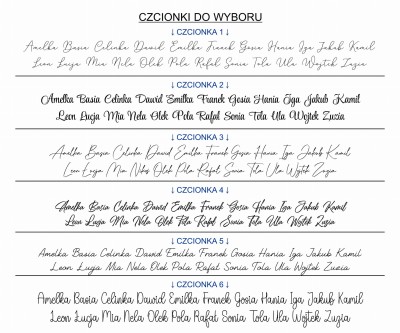 CZCIONKI DO WYBORU
↓ CZCIONKA 1 ↓
Amelka Basia Celinka Dawid Emilka Franek Gosia Hania Iga Jakub Kamil
Leon Łucja Mia Nela Olek Pola Rafał Sonia Tola Ula Wojtek Zuzia
↓ CZCIONKA 2 ↓
Amelka Basia Celinka Dawid Emilka Franek Gosia Hania Iga Jakub Kamil
Leon Łucja Mia Nela Olek Pola Rafał Sonia Tola Ula Wojtek Zuzia
↓ CZCIONKA 3 ↓
Amelka Basia Celinka Dawid Emilka Franek Gosia Hania Iga Jakub Kamil
Leon Łucja Mia Nela Olek Pola Rafał Sonia Tola Ula Wojtek Zuzia
↓ CZCIONKA 4 ↓
Amelka Basia Celinka Dawid Emilka Franek Gosia Hania Iga Jakub Kamil
Leon Łucja Mia Nela Olek Pola Rafał Sonia Tola Ula Wojtek Zuzia
↓ CZCIONKA 5 ↓
Amelka Basia Celinka Dawid Emilka Franek Gosia Hania Iga Jakub Kamil
Leon Łucja Mia Nela Olek Pola Rafał Sonia Tola Ula Wojtek Zuzia
↓ CZCIONKA 6 ↓
Amelka Basia Celinka Dawid Emilka Franek Gosia Hania Iga Jakub Kamil
Leon Łucja Mia Nela Olek Pola Rafał Sonia Tola Ula Wojtek Zuzia